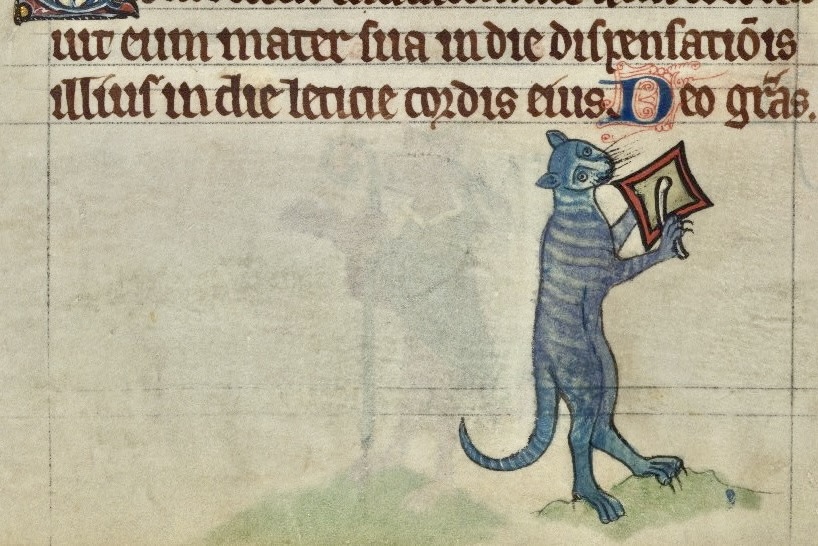 uit eum mater sua in die dispensatiōis
illius in die leticie cordis eius. Deo grās.